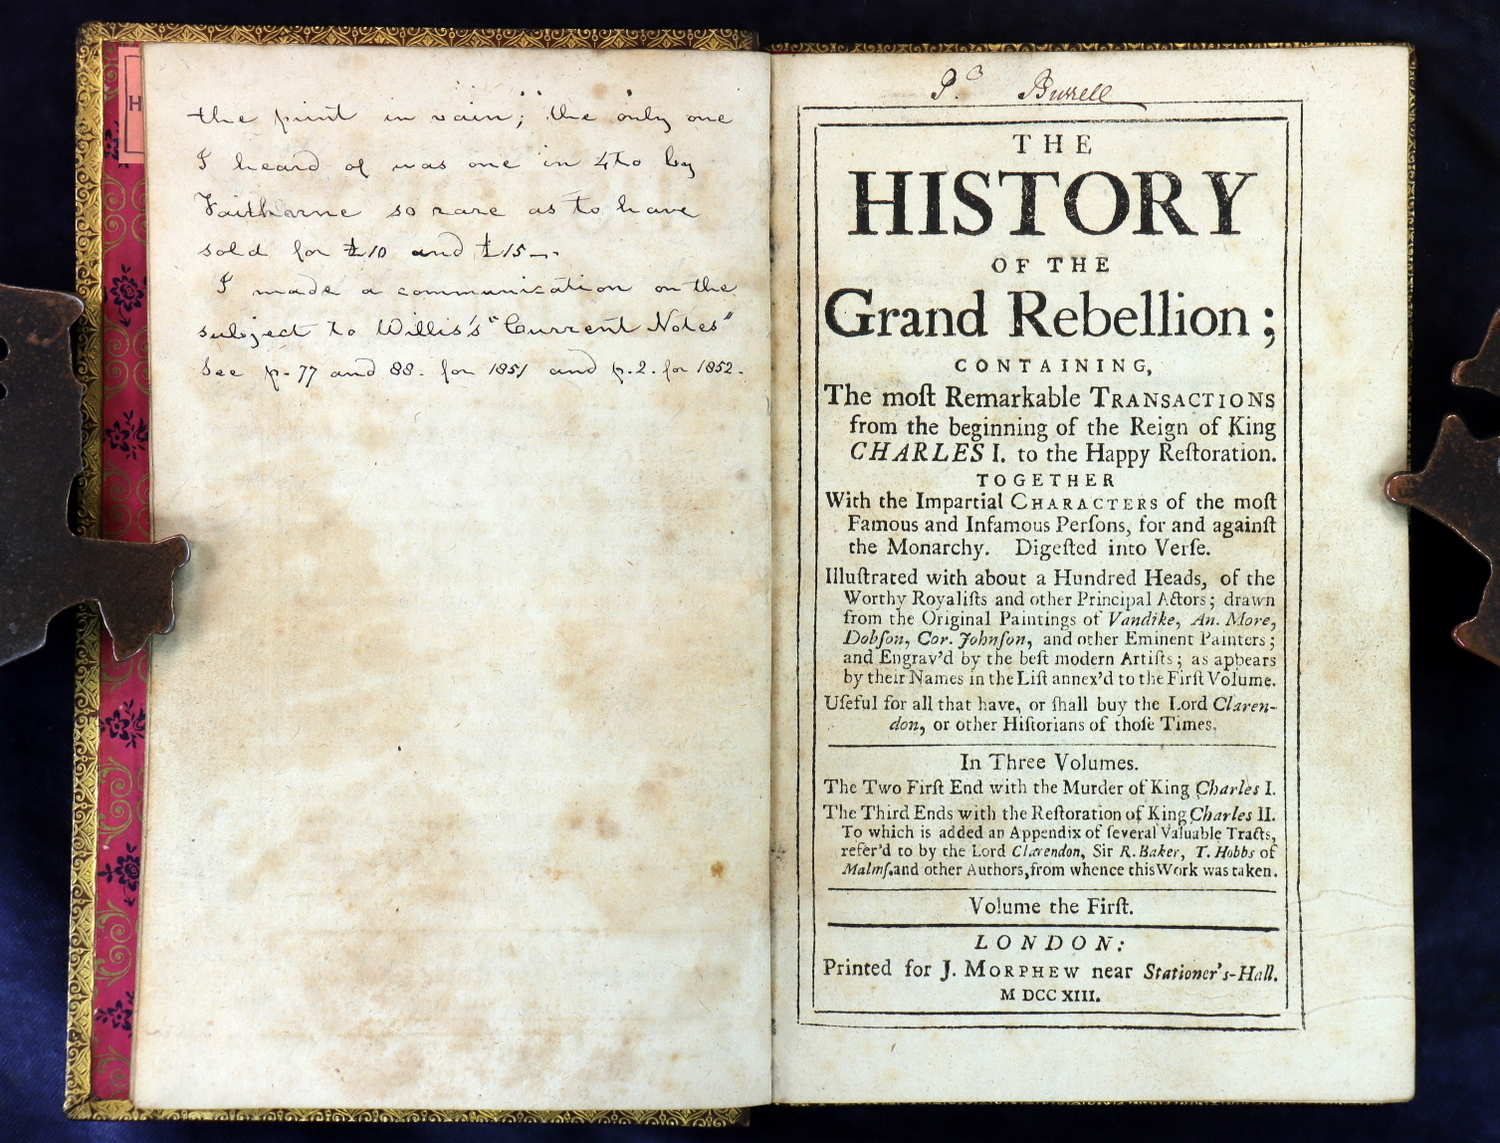 H
the print in vain; the only one
I heard of was one in 4to by
Faithorne so rare as to have
sold for £10 and £15—.
I made a communication on the
subject to Willis's "Current Notes"
See p. 77 and 88. for 1851 and p. 2. for 1852.
P. Burrell
THE
HISTORY
OF THE
Grand Rebellion;
CONTAINING,
The moſt Remarkable TRANSACTIONS
from the beginning of the Reign of King
CHARLES I. to the Happy Reſtoration.
TOGETHER
With the Impartial CHARACTERS of the moſt
Famous and Infamous Perſons, for and againſt
the Monarchy. Digeſted into Verſe.
Illuſtrated with about a Hundred Heads, of the
Worthy Royaliſts and other Principal Actors; drawn
from the Original Paintings of Vandike, An. More,
Dobſon, Cor. Johnſon, and other Eminent Painters;
and Engrav'd by the beſt modern Artiſts; as appears
by their Names in the Liſt annex'd to the Firſt Volume.
Uſeful for all that have, or ſhall buy the Lord Claren-
don, or other Hiſtorians of thoſe Times.
In Three Volumes.
The Two Firſt End with the Murder of King Charles I.
The Third Ends with the Reſtoration of King Charles II.
To which is added an Appendix of ſeveral Valuable Tracts,
refer'd to by the Lord Clarendon, Sir R. Baker, T. Hobbs of
Malmſ. and other Authors, from whence this Work was taken.
Volume the Firſt.
LONDON:
Printed for J. MORPHEW near Stationer's-Hall.
M DCC XIII.